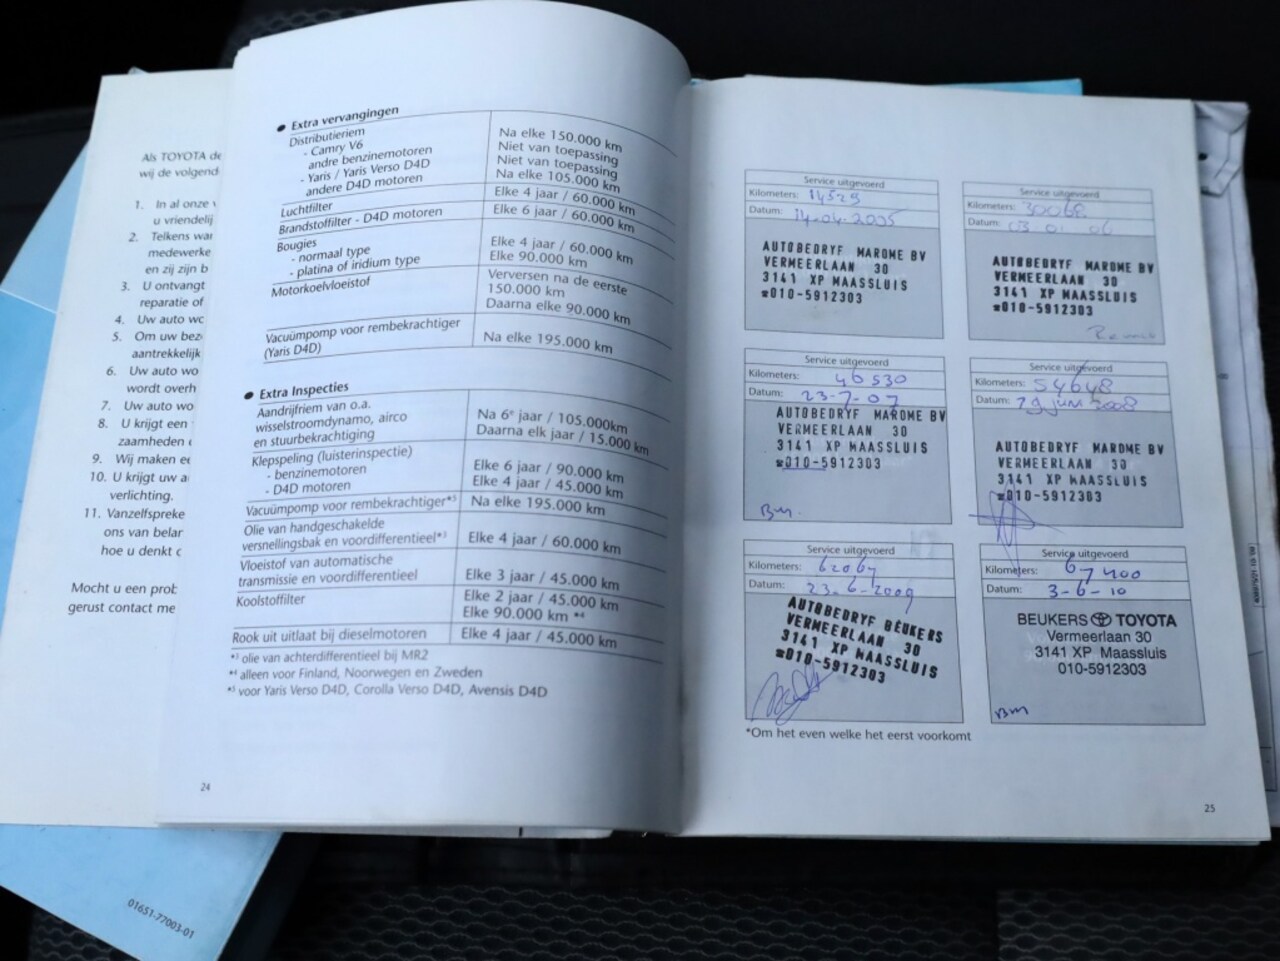 Als TOYOTA de
wij de volgend
1. In al onze
u vriendelij
2. Telkens war
medewerke
en zij zijn b
3. U ontvangt
reparatie of
4. Uw auto wo
5. Om uw bez
aantrekkelijk
6. Uw auto wo
wordt overh
7. Uw auto wo
8. U krijgt een
zaamheden
9. Wij maken ee
10. U krijgt uw a
verlichting.
11. Vanzelfspreke
ons van belar
hoe u denkt
Mocht u een prob
gerust contact me
01651-77003-01
● Extra vervangingen
Distributieriem
- Camry V6 Na elke 150.000 km
andre benzinemotoren Niet van toepassing
- Yaris / Yaris Verso D4D Niet van toepassing
andere D4D motoren Na elke 105.000 km
Luchtfilter Elke 4 jaar / 60.000 km
Brandstoffilter - D4D motoren Elke 6 jaar / 60.000 km
Bougies
- normaal type Elke 4 jaar / 60.000 km
- platina of iridium type Elke 90.000 km
Motorkoelvloeistof Verversen na de eerste
150.000 km
Daarna elke 90.000 km
Vacuümpomp voor rembekrachtiger Na elke 195.000 km
(Yaris D4D)
● Extra Inspecties
Aandrijfriem van o.a. Na 6e jaar / 105.000km
wisselstroomdynamo, airco Daarna elk jaar / 15.000 km
en stuurbekrachtiging
Klepspeling (luisterinspectie)
- benzinemotoren Elke 6 jaar / 90.000 km
- D4D motoren Elke 4 jaar / 45.000 km
Vacuümpomp voor rembekrachtiger*5 Na elke 195.000 km
Olie van handgeschakelde
versnellingsbak en voordifferentieel*3 Elke 4 jaar / 60.000 km
Vloeistof van automatische
transmissie en voordifferentieel Elke 3 jaar / 45.000 km
Koolstoffilter Elke 2 jaar / 45.000 km
Elke 90.000 km *4
Rook uit uitlaat bij dieselmotoren Elke 4 jaar / 45.000 km
*3 olie van achterdifferentieel bij MR2
*4 alleen voor Finland, Noorwegen en Zweden
*5 voor Yaris Verso D4D, Corolla Verso D4D, Avensis D4D
24
Service uitgevoerd
Kilometers: 14529
Datum: 14-04-2005
AUTOBEDRYF MAROME BV
VERMEERLAAN 30
3141 XP MAASSLUIS
☎010-5912303
Service uitgevoerd
Kilometers: 30068
Datum: 03 01 06
AUTOBEDRYF MAROME BV
VERMEERLAAN 30
3141 XP MAASSLUIS
☎010-5912303
Service uitgevoerd
Kilometers: 46530
Datum: 23-7-07
AUTOBEDRYF MAROME BV
VERMEERLAAN 30
3141 XP MAASSLUIS
☎010-5912303
Bm.
Service uitgevoerd
Kilometers: 54648
Datum: 29 juni 2008
AUTOBEDRYF MAROME BV
VERMEERLAAN 30
3141 XP MAASSLUIS
☎010-5912303
Service uitgevoerd
Kilometers: 62067
Datum: 23-6-2009
AUTOBEDRYF BEUKERS
VERMEERLAAN 30
3141 XP MAASSLUIS
☎010-5912303
Service uitgevoerd
Kilometers: 67400
Datum: 3-6-10
BEUKERS TOYOTA
Vermeerlaan 30
3141 XP Maassluis
010-5912303
Bm
*Om het even welke het eerst voorkomt
25